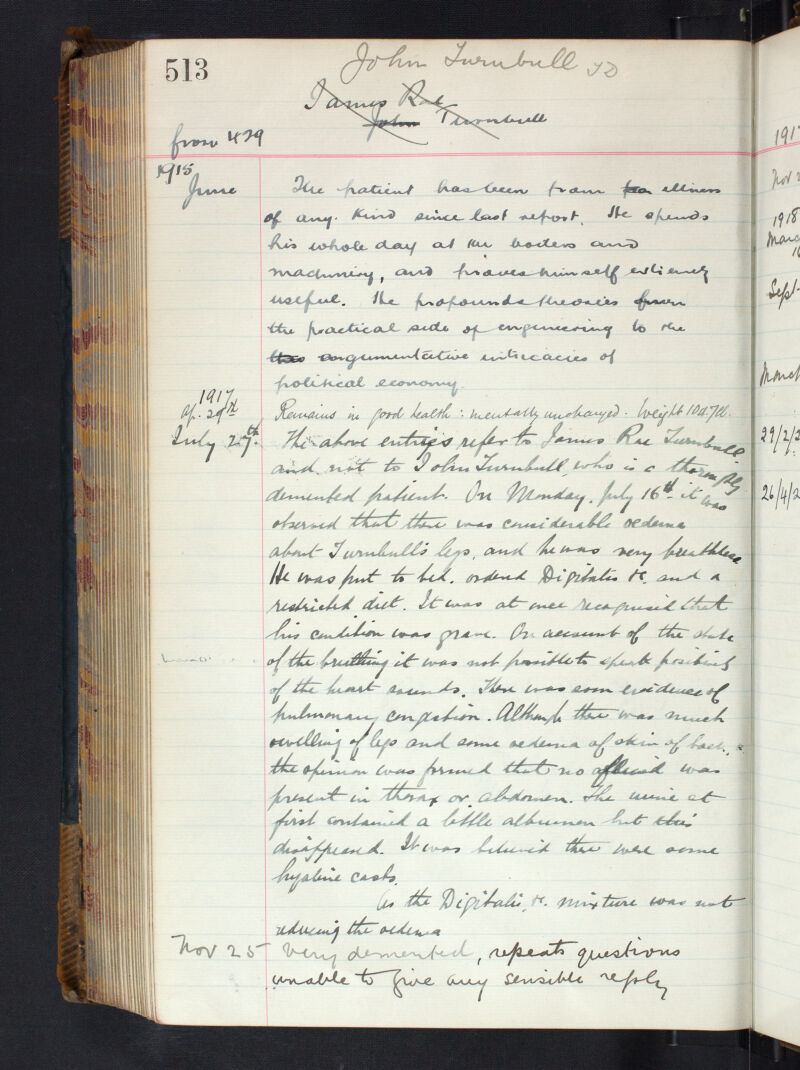 513
John Turnbull
James Rae
John Turnbull
from 429
1915
June
The patient has been free from illness
of any kind since last report. He spends
his whole day at the boilers and
machinery, and proves himself extremely
useful. He propounds theories from
the practical side of engineering to the
argumentative intricacies of
political economy.
1917
Ap. 29th
Remains in good health: mentally unchanged. Weight 10st 7lb.
July 27th.
The above entries refer to James Rae Turnbull
and not to John Turnbull, who is a thoroughly
demented patient. On Monday, July 16th it was
observed that there was considerable oedema
about Turnbull's legs, and he was very breathless
He was put to bed, ordered Digitalis &c. and a
restricted diet. It was at once recognised that
his condition was grave. On account of the state
of the breathing it was not possible to speak positively
of the heart sounds. There was some evidence of
pulmonary congestion. Although there was much
swelling of legs and some oedema of skin of back,
the opinion was formed that no fluid was
present in thorax or abdomen. The urine at
first contained a little albumen but this
disappeared. It was believed there were some
hyaline casts.
As the Digitalis, &c. mixture was not
reducing the oedema
Nov 25
Very demented, repeats questions
unable to give any sensible reply
1917
Nov
1918
March
Sept.
March
29/2/2
26/4/2